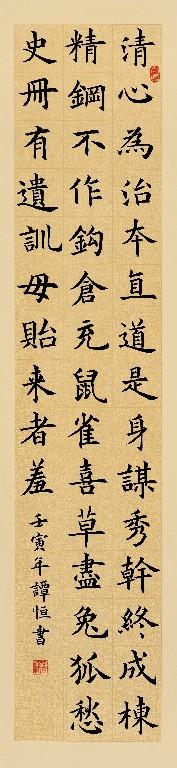 清心為治本直道是身謀秀幹終成棟
精鋼不作鈎倉充鼠雀喜草盡兔狐愁
史冊有遺訓毋貽来者羞
壬寅年譚恒書